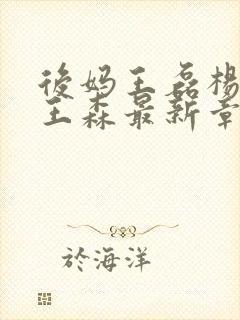 後妈王磊楊
王森最新章
於海洋